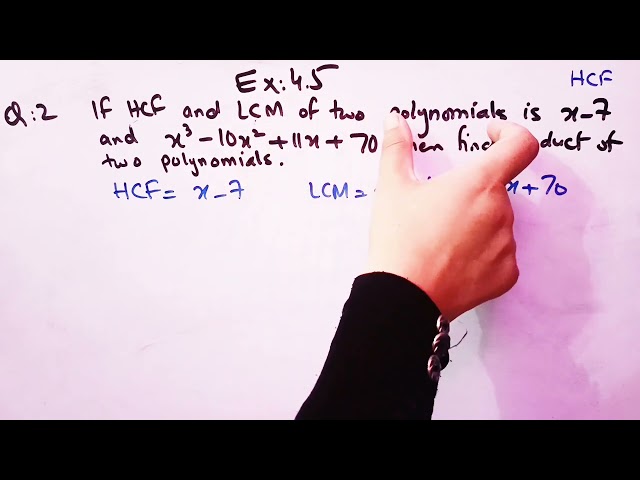 Ex: 4.5
HCF
Q:2 If HCF and LCM of two polynomials is x-7
and x³-10x²+11x+70 find duct of
two polynomials.
HCF = x-7 LCM = x+70